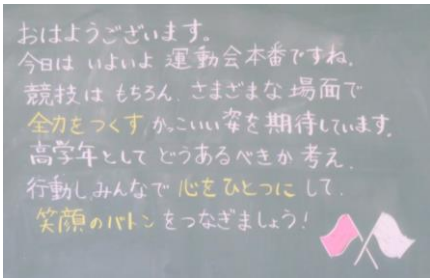 おはようございます。
今日は いよいよ 運動会本番ですね。
競技は もちろん、さまざまな 場面で
全力をつくす かっこいい 姿を 期待しています。
高学年として どうあるべきか 考え、
行動し、みんなで 心をひとつに して、
笑顔のバトン をつなぎましょう！